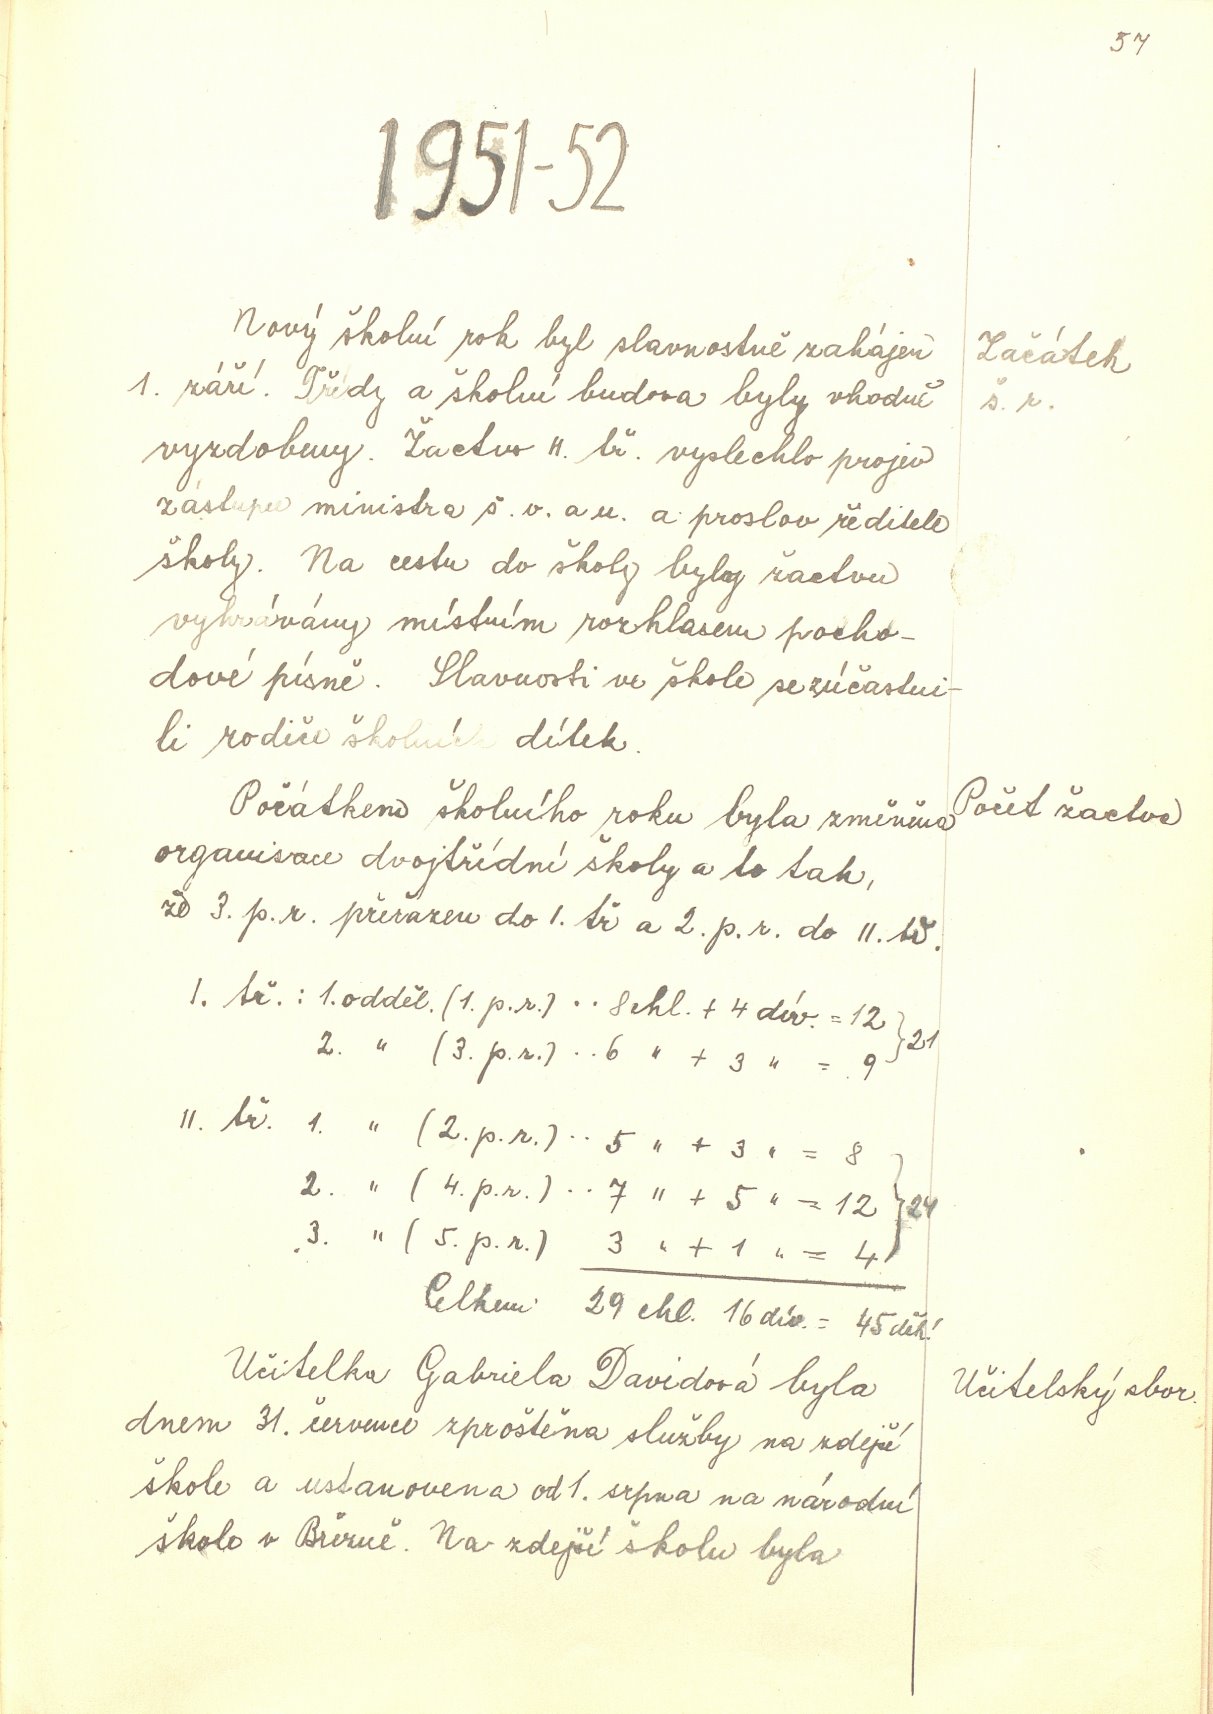 57
1951-52
Nový školní rok byl slavnostně zahájen
Začátek
1. září. Třídy a školní budova byly vhodně
š. r.
vyzdobeny. Žactvo II. tř. vyslechlo projev
zástupce ministra š. v. a u. a proslov ředitele
školy. Na cestu do školy byly žactvu
vyhrávány místním rozhlasem pocho-
dové písně. Slavnosti ve škole se zúčastni-
li rodiče školních dítek.
Počátkem školního roku byla změněna
Počet žactva
organisace dvojtřídní školy a to tak,
že 3. p. r. přeřazen do I. tř a 2. p. r. do II. tř.
I. tř. : 1. odděl. (1. p. r.) .. 8 chl. + 4 dív. = 12
2. " (3. p. r.) .. 6 " + 3 " = 9 } 21
II. tř. 1. " (2. p. r.) .. 5 " + 3 " = 8
2. " (4. p. r.) .. 7 " + 5 " = 12 } 24
3. " (5. p. r.) 3 " + 1 " = 4
Celkem 29 chl. 16 dív. = 45 dětí
Učitelka Gabriela Davidová byla
Učitelský sbor.
dnem 31. července zproštěna služby na zdejší
škole a ustanovena od 1. srpna na národní
škole v Březně. Na zdejší školu byla